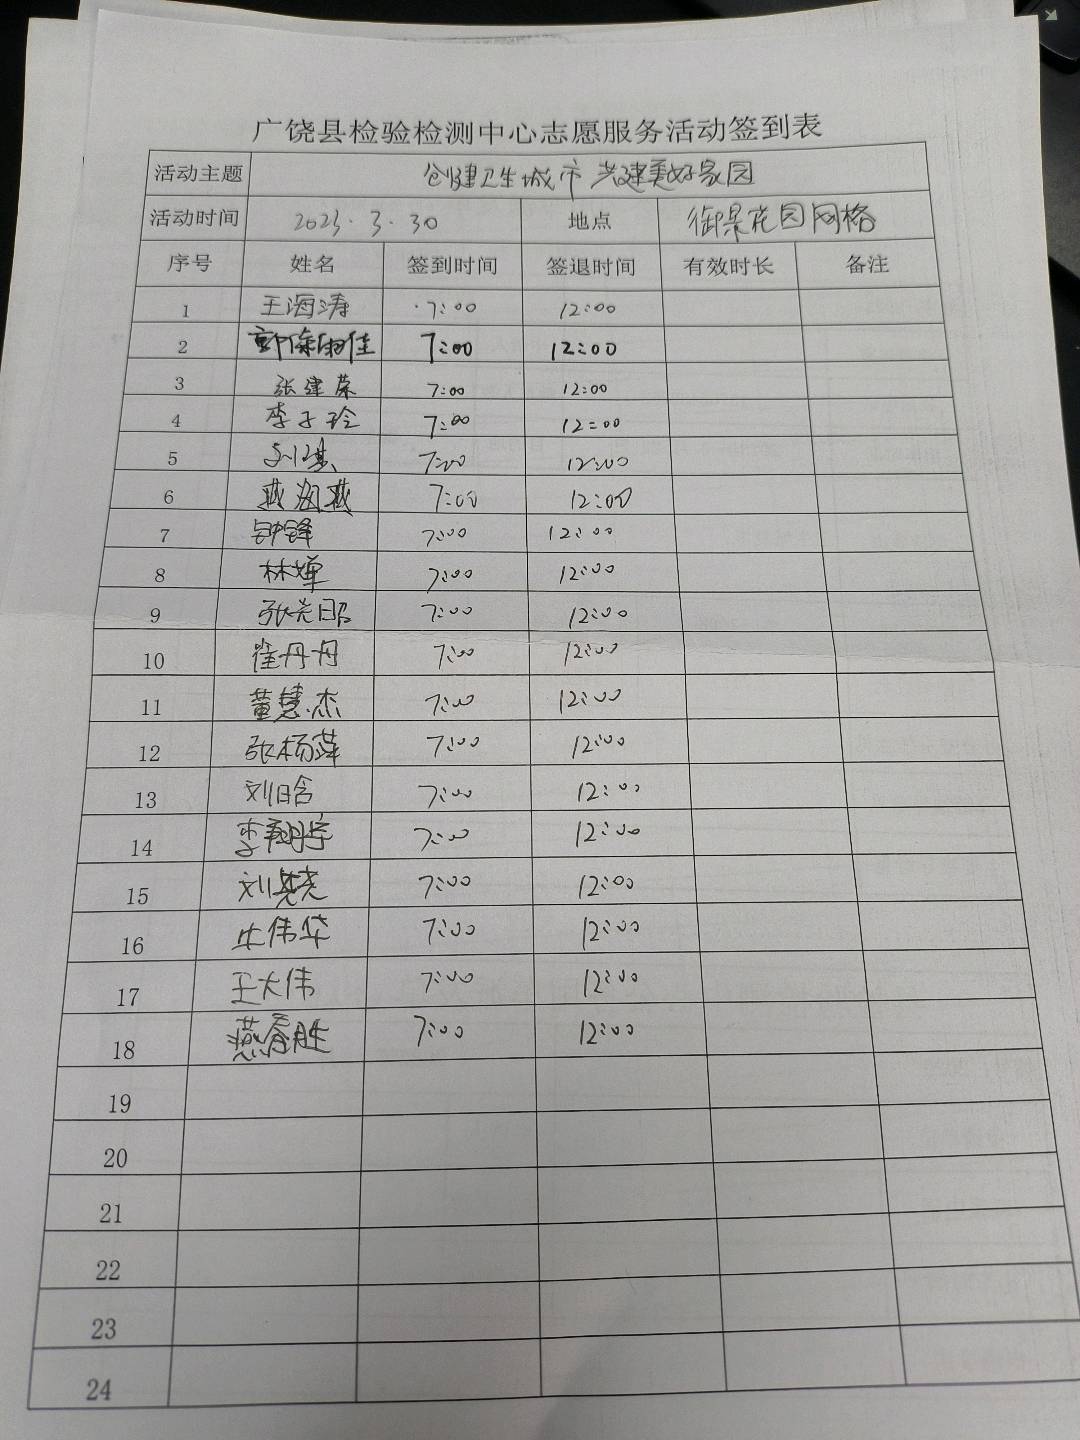 广饶县检验检测中心志愿服务活动签到表
活动主题 创建卫生城市 共建美好家园
活动时间 2023.3.30 地点 御景花园网格
序号 姓名 签到时间 签退时间 有效时长 备注
1 王海涛 7:00 12:00
2 7:00 12:00
3 张建荣 7:00 12:00
4 李子玲 7:00 12:00
5 7:00 12:00
6 燕海燕 7:00 12:00
7 钟锋 7:00 12:00
8 林婵 7:00 12:00
9 7:00 12:00
10 崔丹丹 7:00 12:00
11 董慧杰 7:00 12:00
12 张杨萍 7:00 12:00
13 刘日含 7:00 12:00
14 李翔宇 7:00 12:00
15 刘尧 7:00 12:00
16 伟华 7:00 12:00
17 王大伟 7:00 12:00
18 燕春胜 7:00 12:00
19
20
21
22
23
24